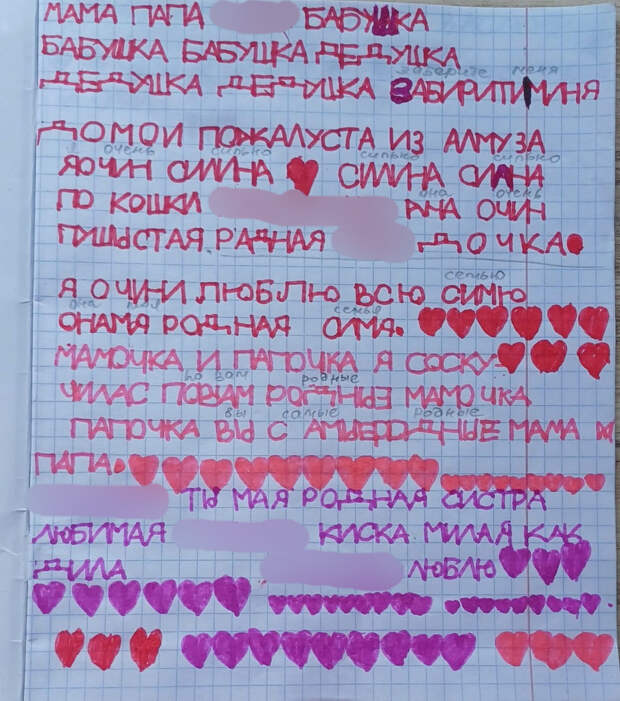 МАМА ПАПА БАБУШКА
БАБУШКА БАБУШКА ДЕДУШКА
заберите меня
ДЕДУШКА ДЕДУШКА ЗАБИРИТИМИНЯ
ДОМОИ ПОЖАЛУСТА ИЗ АЛМУЗА
я очень сильно сильно сильно
ЯОЧИН СИЛИНА СИЛИНА СИЛНА
она очень
ПО КОШКИ АНА ОЧИН
ПУШЫСТАЯ РАДНАЯ ДОЧКА
семью
Я ОЧИНИ ЛЮБЛЮ ВСЮ СИМЮ
она моя семья
ОНАМАЯ РОДНАЯ СИМЯ.
МАМОЧКА И ПАПОЧКА Я СОСКУ-
по вам родные
ЧИЛАС ПОВАМ РОДНЫЕ МАМОЧКА
вы самые родные
ПАПОЧКА ВЫ САМЫЕРОДНЫЕ МАМА И
ПАПА.
ТЫ МАЯ РОДНАЯ СИСТРА
ЛЮБИМАЯ КИСКА МИЛАЯ КАК
ДИЛА ЛЮБЛЮ